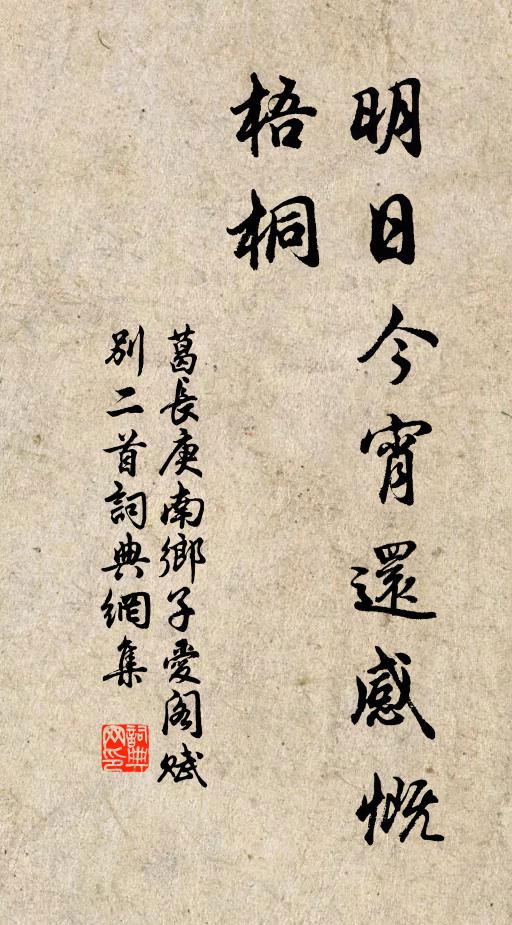 明日今宵還感慨
梧桐
葛長庚南鄉子愛閣賦
別二首詞典網集
詞典网印